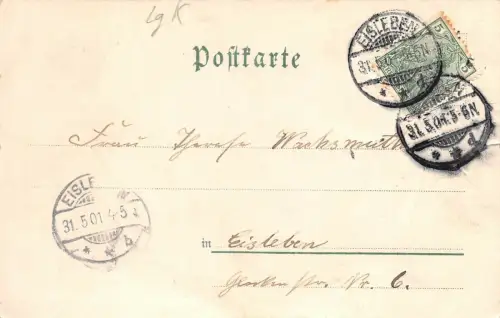 Lg K
Postkarte
EISLEBEN
31.5.01.4-5N
5
31.5.01.5-6N
Frau Therese Wachsmuth
EISLEBEN
31.5.01 4-5
b
in Eisleben
Glockenstr. Nr. 6.